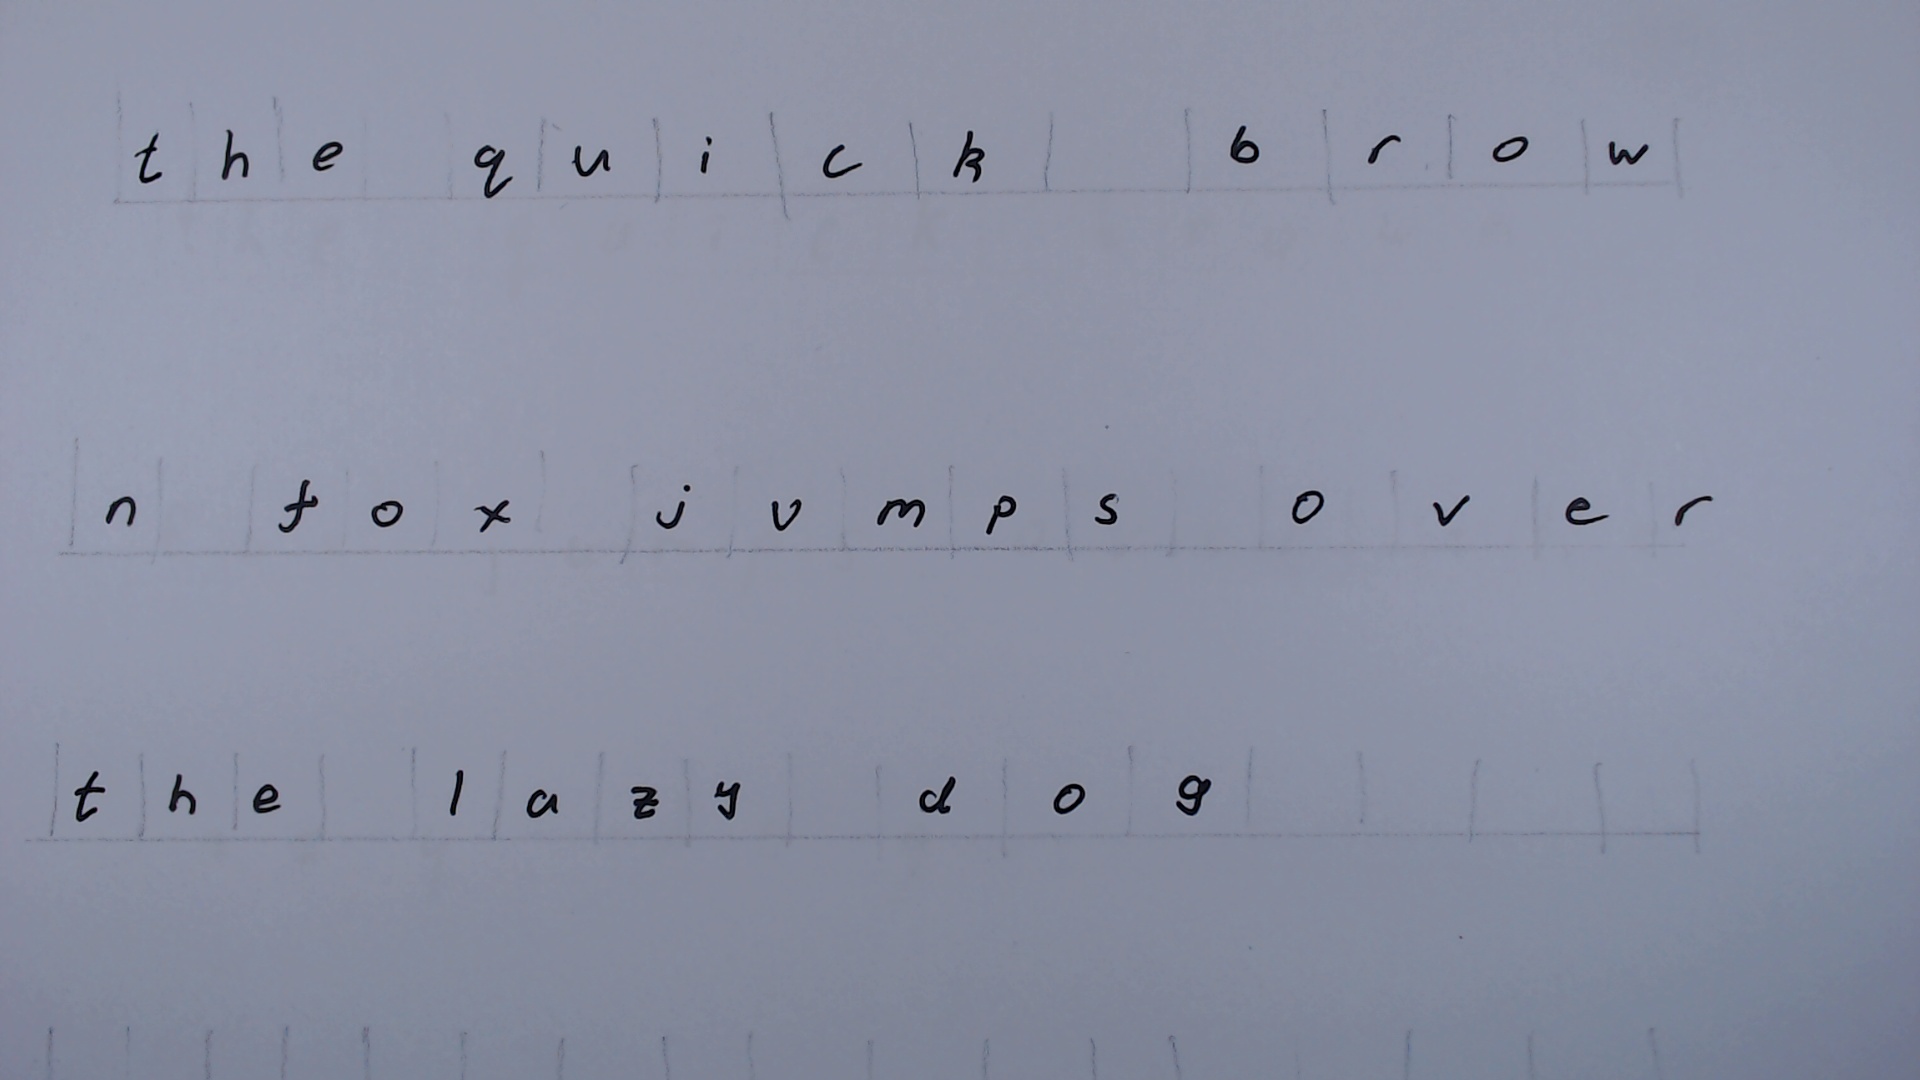 the quick brow
n fox jumps over
the lazy dog